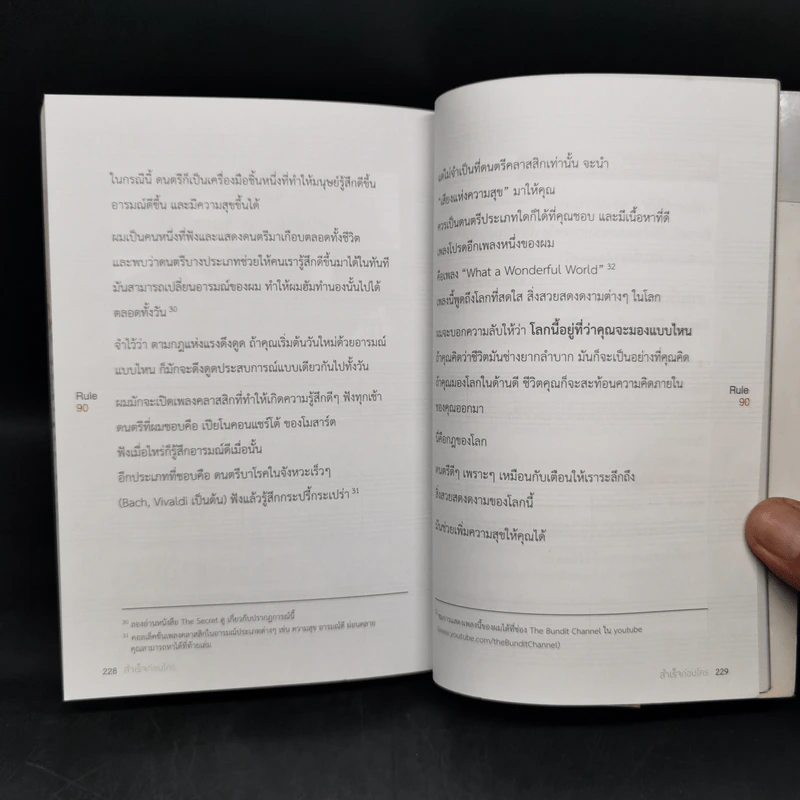 ในกรณีนี้ ดนตรีก็เป็นเครื่องมือชิ้นหนึ่งที่ทำให้มนุษย์รู้สึกดีขึ้น
อารมณ์ดีขึ้น และมีความสุขขึ้นได้
ผมเป็นคนหนึ่งที่ฟังและแสดงดนตรีมาเกือบตลอดทั้งชีวิต
และพบว่าดนตรีบางประเภทช่วยให้คนเรารู้สึกดีขึ้นมาได้ในทันที
มันสามารถเปลี่ยนอารมณ์ของผม ทำให้ผมฮัมทำนองนั้นไปได้
ตลอดทั้งวัน 30
จำไว้ว่า ตามกฎแห่งแรงดึงดูด ถ้าคุณเริ่มต้นวันใหม่ด้วยอารมณ์
แบบไหน ก็มักจะดึงดูดประสบการณ์แบบเดียวกันไปทั้งวัน
Rule
90
ผมมักจะเปิดเพลงคลาสสิกที่ทำให้เกิดความรู้สึกดีๆ ฟังทุกเช้า
ดนตรีที่ผมชอบคือ เปียโนคอนแชร์โต้ ของโมสาร์ต
ฟังเมื่อไหร่ก็รู้สึกอารมณ์ดีเมื่อนั้น
อีกประเภทที่ชอบคือ ดนตรีบาโรคในจังหวะเร็วๆ
(Bach, Vivaldi เป็นต้น) ฟังแล้วรู้สึกกระปรี้กระเปร่า 31
30 ลองอ่านหนังสือ The Secret ดู เกี่ยวกับปรากฏการณ์นี้
31 คอลเล็คชั่นเพลงคลาสสิกในอารมณ์ประเภทต่างๆ เช่น ความสุข อารมณ์ดี ผ่อนคลาย
คุณสามารถหาได้ที่ท้ายเล่ม
228 สำเร็จก่อนใคร
แต่ไม่จำเป็นที่ดนตรีคลาสสิกเท่านั้น จะนำ
"เสียงแห่งความสุข" มาให้คุณ
ควรเป็นดนตรีประเภทใดก็ได้ที่คุณชอบ และมีเนื้อหาที่ดี
เพลงโปรดอีกเพลงหนึ่งของผม
คือเพลง "What a Wonderful World" 32
เพลงนี้พูดถึงโลกที่สดใส สิ่งสวยสดงดงามต่างๆ ในโลก
ผมจะบอกความลับให้ว่า โลกนี้อยู่ที่ว่าคุณจะมองแบบไหน
ถ้าคุณคิดว่าชีวิตมันช่างยากลำบาก มันก็จะเป็นอย่างที่คุณคิด
ถ้าคุณมองโลกในด้านดี ชีวิตคุณก็จะสะท้อนความคิดภายใน
ของคุณออกมา
Rule
90
นี่คือกฎของโลก
ดนตรีดีๆ เพราะๆ เหมือนกับเตือนให้เราระลึกถึง
สิ่งสวยสดงดงามของโลกนี้
มันช่วยเพิ่มความสุขให้คุณได้
การแสดงเพลงนี้ของผมได้ที่ช่อง The Bundit Channel ใน youtube
(www.youtube.com/theBunditChannel)
สำเร็จก่อนใคร 229